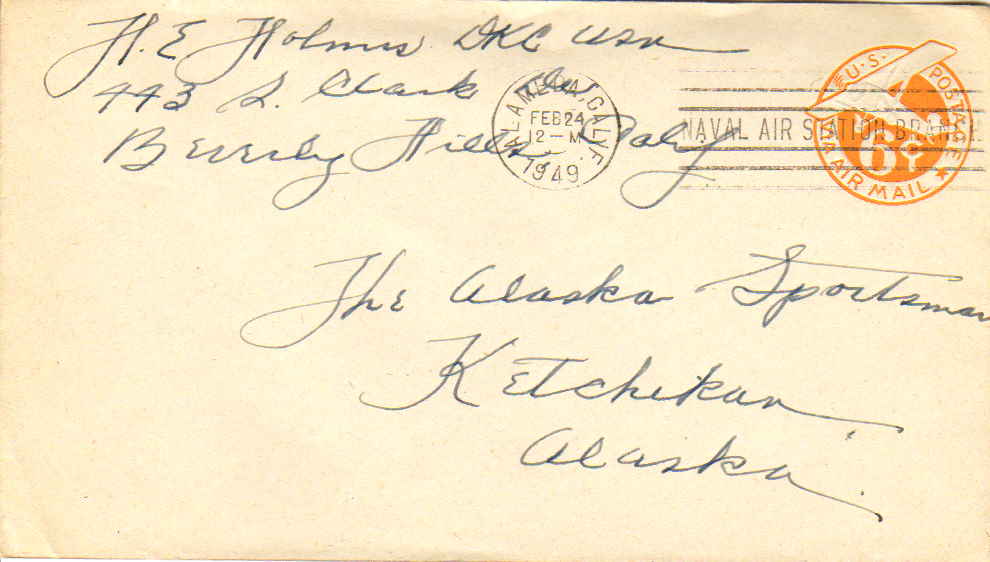 H.E Holmes DKC USN
443 S. Clark Dr
Beverly Hills, Calif
ALAMEDA, CALIF.
FEB 24
12 - M
1949
NAVAL AIR STATION BRANCH
U.S. POSTAGE
6¢
VIA AIR MAIL
The Alaska Sportsman
Ketchikan
Alaska.